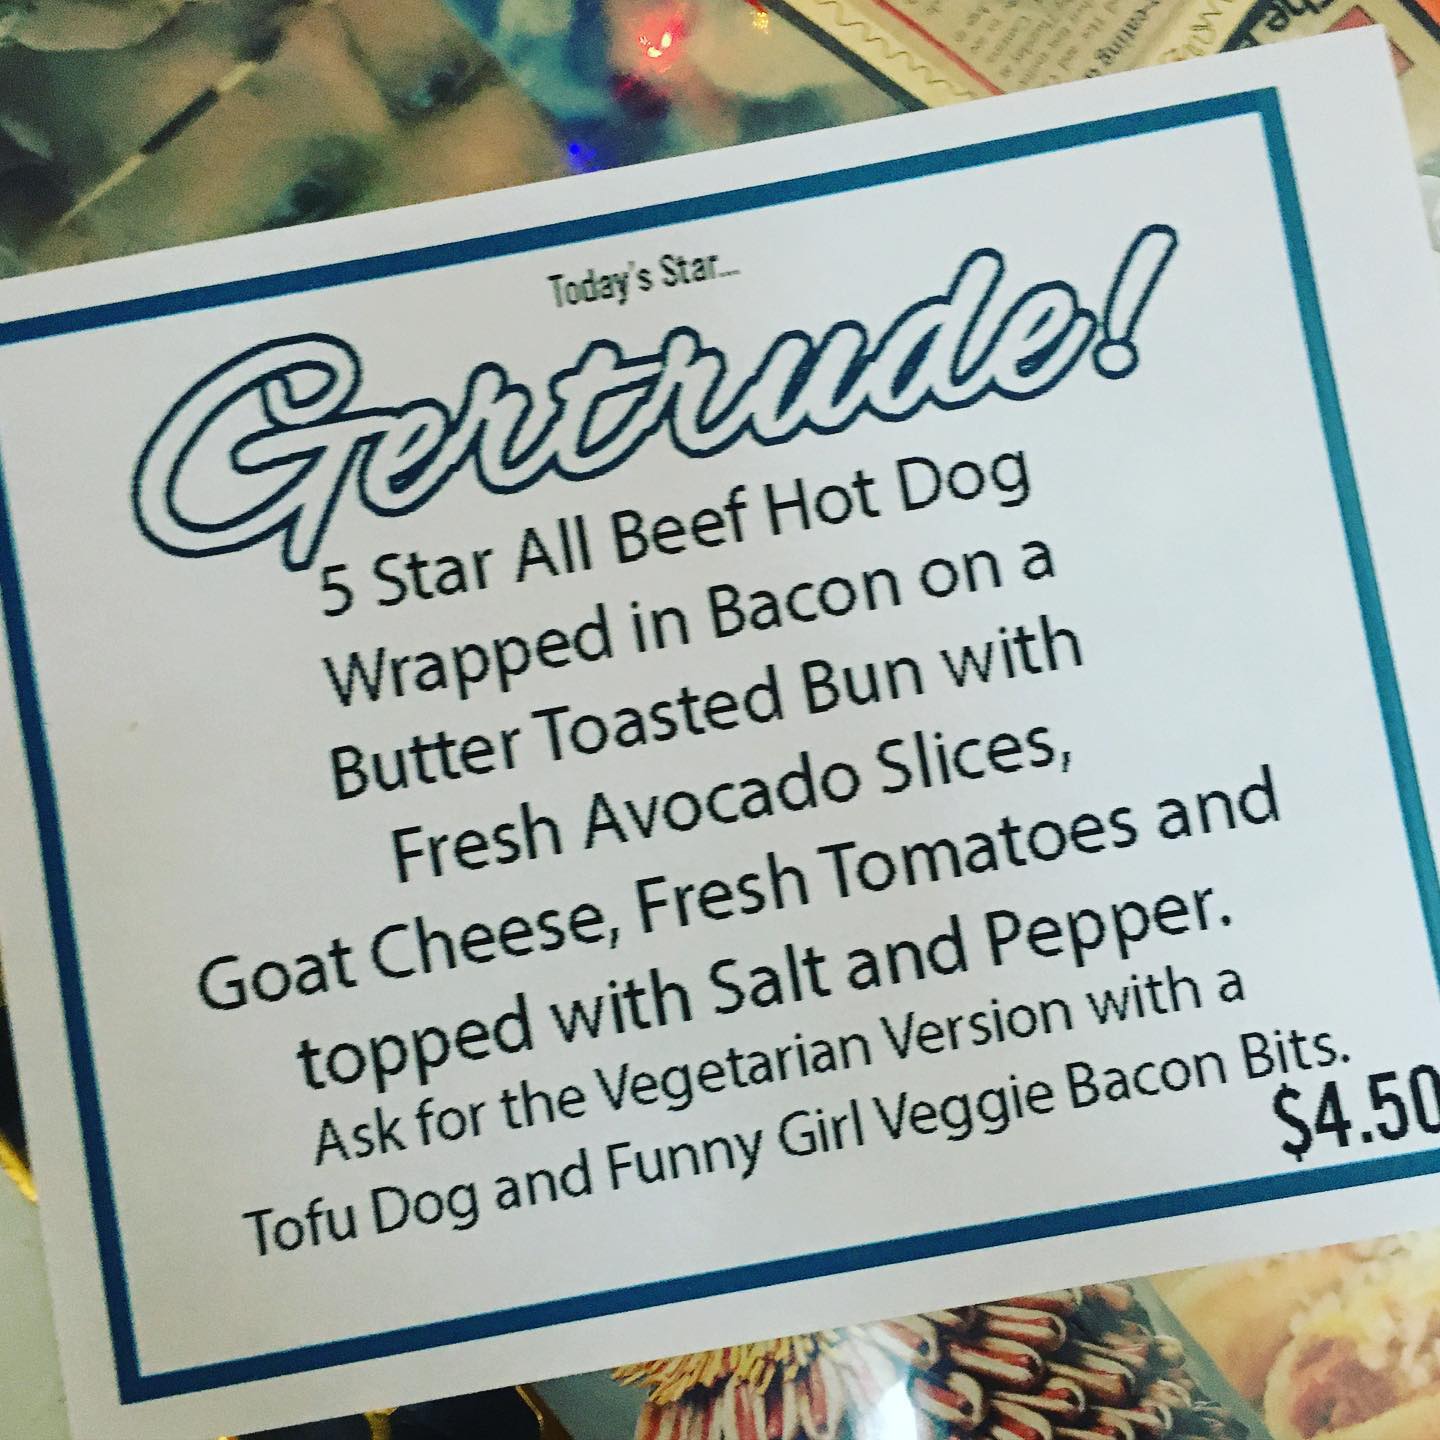 Today's Star...
Gertrude!
5 Star All Beef Hot Dog
Wrapped in Bacon on a
Butter Toasted Bun with
Fresh Avocado Slices,
Goat Cheese, Fresh Tomatoes and
topped with Salt and Pepper.
Ask for the Vegetarian Version with a
Tofu Dog and Funny Girl Veggie Bacon Bits.
$4.50